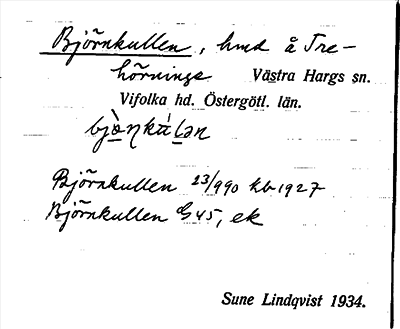 Björnkullen, hmd å Tre-
hörnings Västra Hargs sn.
Vifolka hd. Östergötl. län.
bjò̱ṇkⱥ́ḻən
Björnkullen 23/990 kb 1927
Björnkullen G 45, ek
Sune Lindqvist 1934.